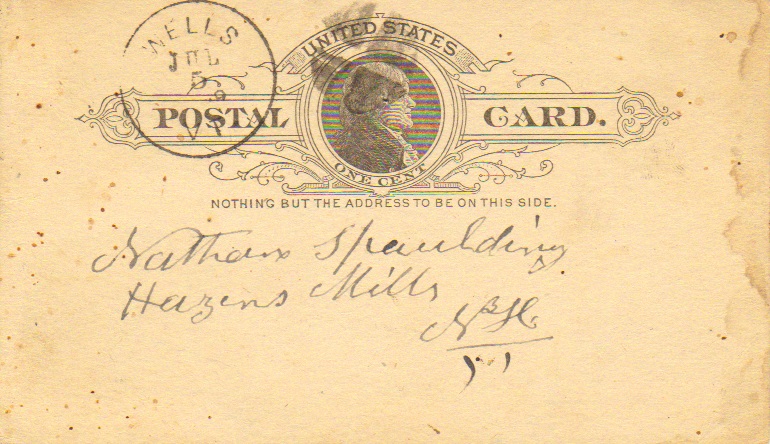 WELLS
JUL
5
VT
UNITED STATES
POSTAL CARD.
ONE CENT
NOTHING BUT THE ADDRESS TO BE ON THIS SIDE.
Nathan Spaulding
Hazens Mills
N H